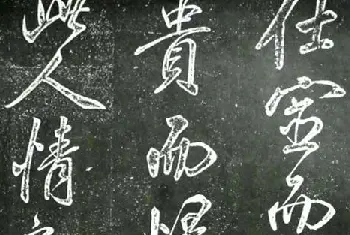 仕宦而
貴而
此人情